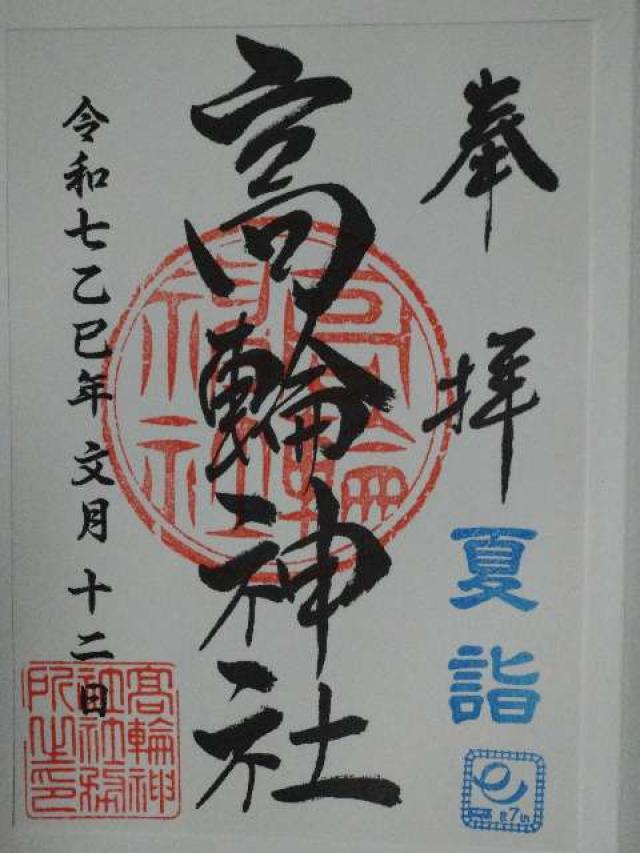 奉拝
夏詣
高輪神社
令和七乙巳年 文月 十二日
高輪神
社社務
所之印